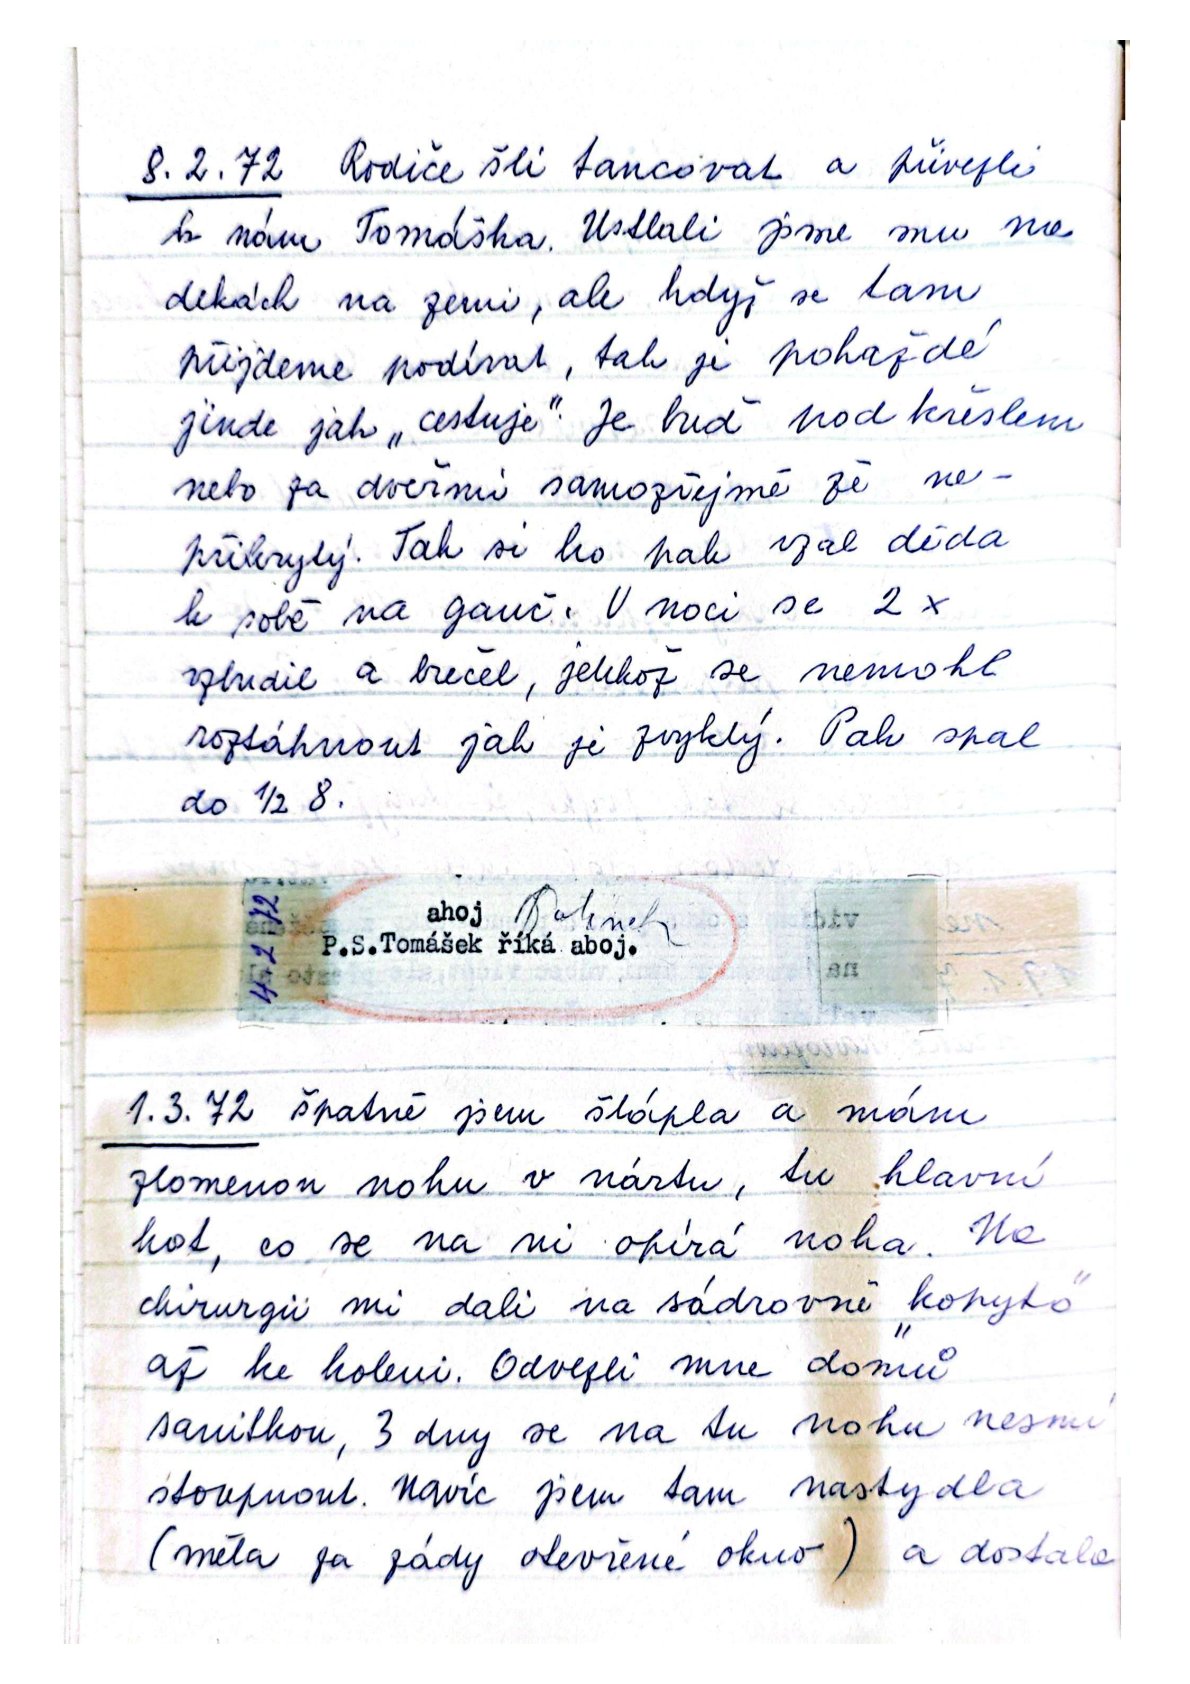 8.2.72 Rodiče šli tancovat a přivezli
k nám Tomáška. Ustlali jsme mu na
dekách na zemi, ale když se tam
přijdeme podívat, tak je pokaždé
jinde jak „cestuje“. Je buď pod křeslem
nebo za dveřmi samozřejmě že ne-
přikrytý. Tak si ho pak vzal děda
k sobě na gauč. V noci se 2 x
vzbudil a brečel, jelikož se nemohl
roztáhnout jak je zvyklý. Pak spal
do 1/2 8.
4.2.72
ahoj
P.S.Tomášek říká aboj.
1.3.72 špatně jsem šlápla a mám
zlomenou nohu v nártu, tu hlavní
kost, co se na ni opírá noha. Na
chirurgii mi dali na sádrovně „kopyto“
až ke koleni. Odvezli mne domů
sanitkou, 3 dny se na tu nohu nesmí
stoupnout. Navíc jsem tam nastydla
(měla za zády otevřené okno) a dostala